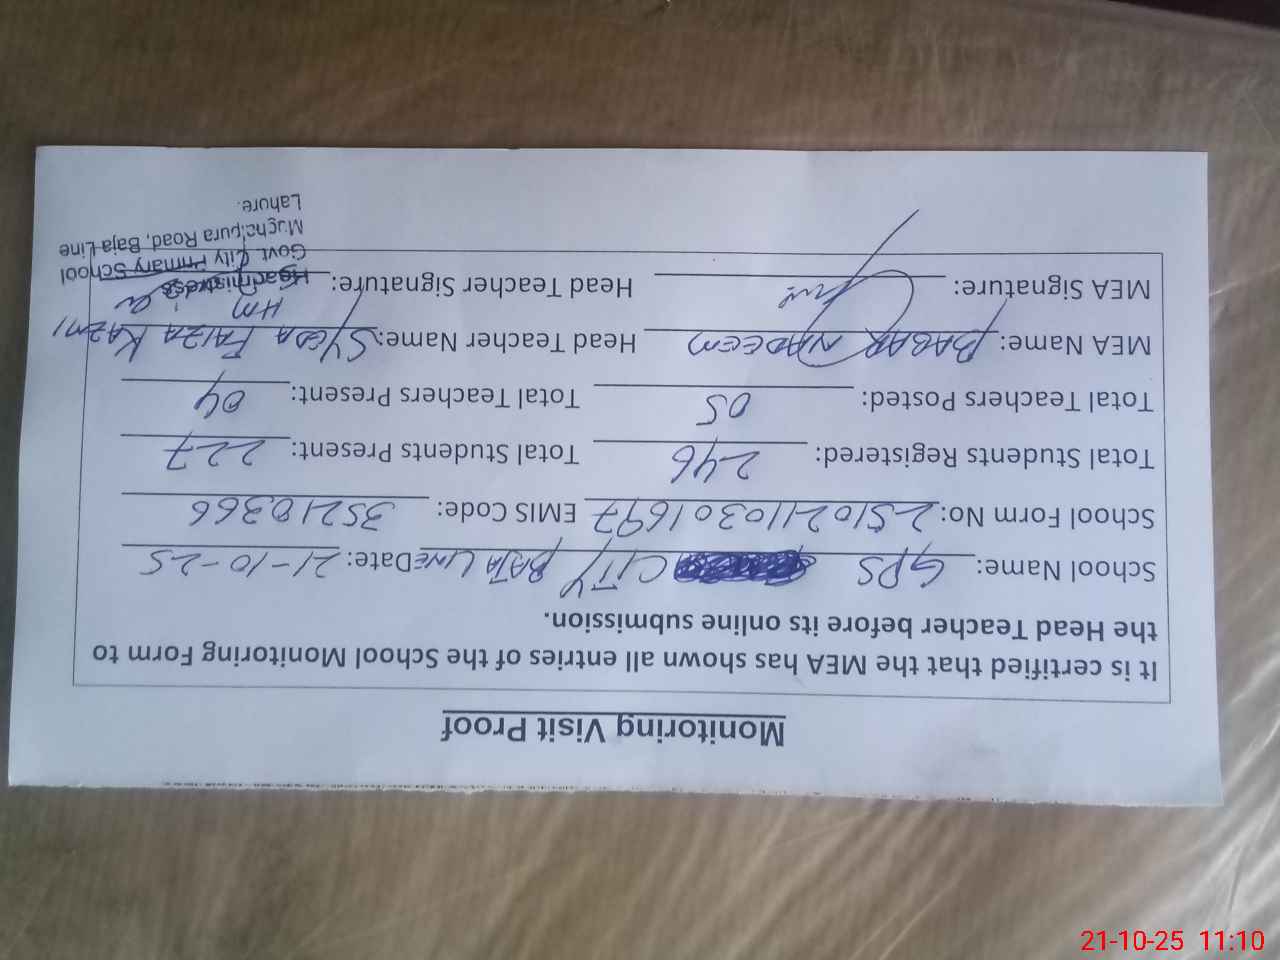 Monitoring Visit Proof
It is certified that the MEA has shown all entries of the School Monitoring Form to
the Head Teacher before its online submission.
School Name: GPS CITY BAJA LINE Date: 21-10-25
School Form No: 25102110301697 EMIS Code: 35210366
Total Students Registered: 246 Total Students Present: 227
Total Teachers Posted: 05 Total Teachers Present: 04
MEA Name: BABAR NADEEM Head Teacher Name: SYEDA FAIZA KAZMI
MEA Signature: Head Teacher Signature: HM
Headmistress
Govt. City Primary School
Mughalpura Road, Baja Line
Lahore.
21-10-25 11:10